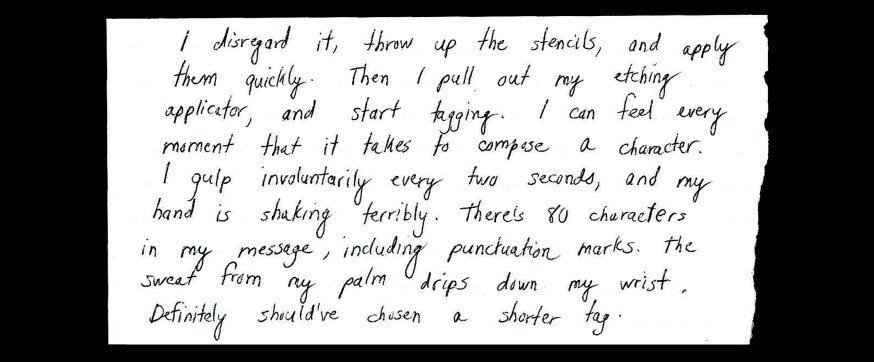 I disregard it, throw up the stencils, and apply
them quickly. Then I pull out my etching
applicator, and start tagging. I can feel every
moment that it takes to compose a character.
I gulp involuntarily every two seconds, and my
hand is shaking terribly. There's 80 characters
in my message, including punctuation marks. The
sweat from my palm drips down my wrist.
Definitely should've chosen a shorter tag.